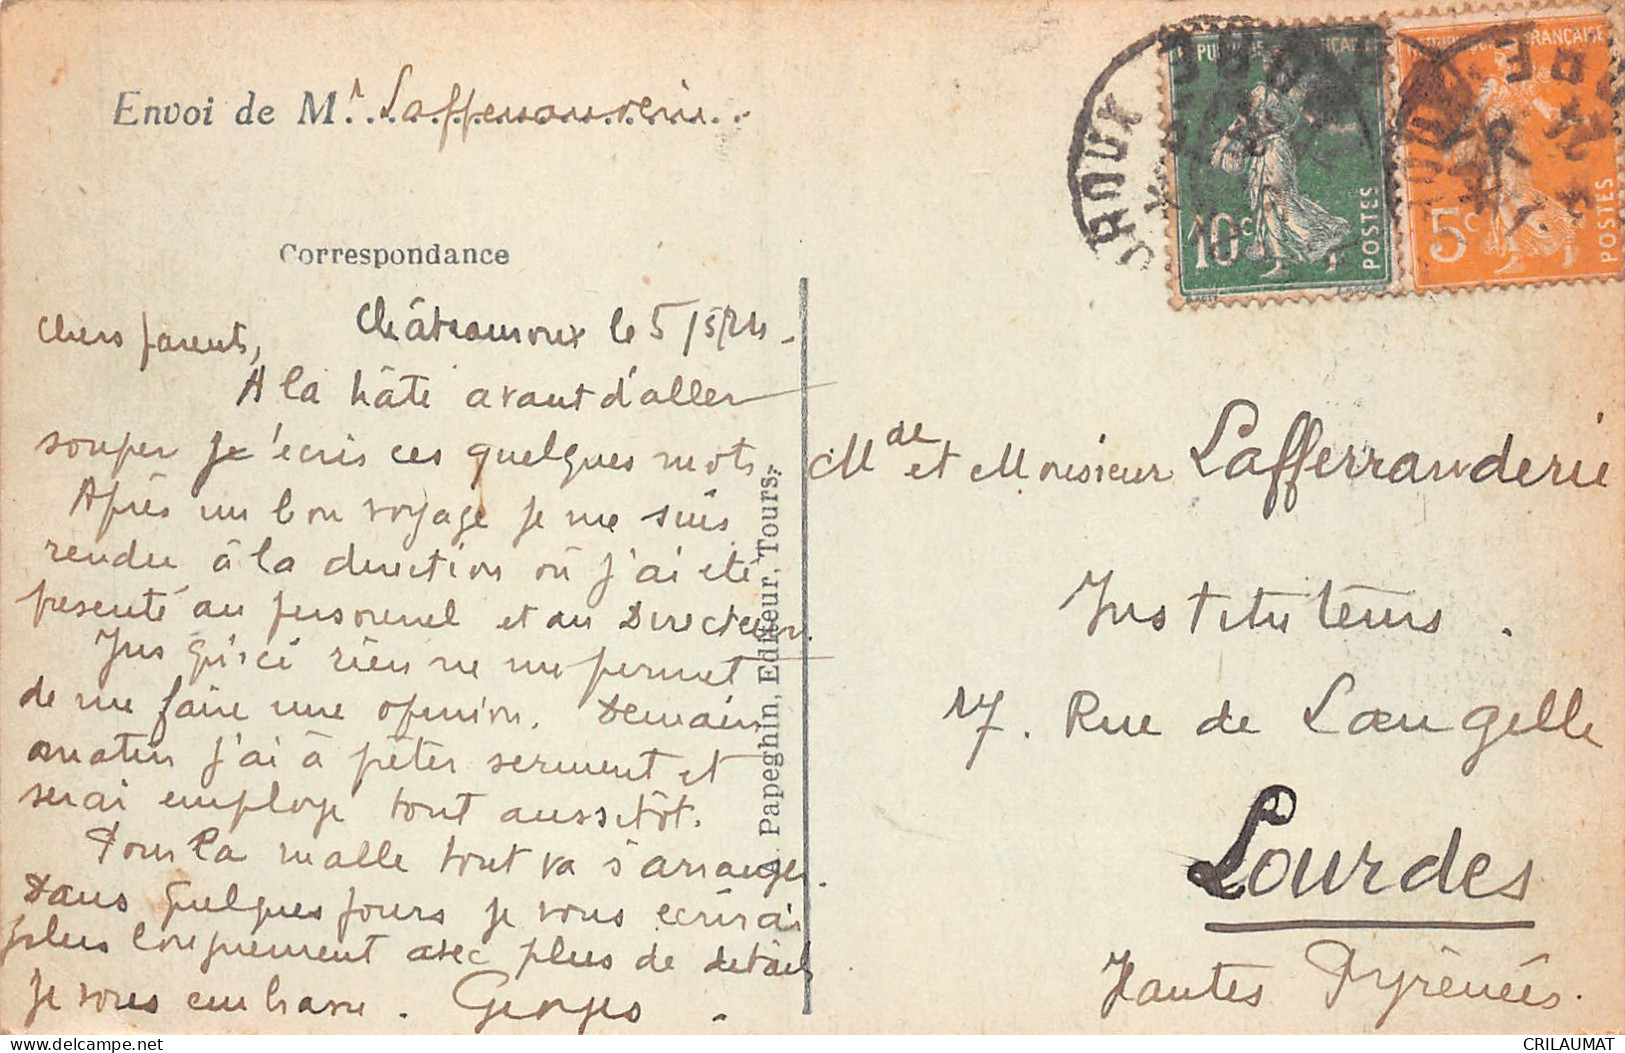 Envoi de Mr Lafferranderie
Correspondance
Châteauroux le 5/5/24.
Chers parents,
A la hâte avant d'aller
souper je écris ces quelques mots.
Après un bon voyage je me suis
rendu à la direction où j'ai été
présenté au personnel et au Directeur.
Jusqu'ici rien ne me permet
de me faire une opinion. Demain
matin j'ai à prêter serment et
serai employé tout aussitôt.
Pour la malle tout va s'arranger.
Dans quelques jours je vous écrirai
plus longuement avec plus de détails
Je vous embrasse. Georges.
Papeghin, Editeur, Tours.
RÉPUBLIQUE FRANÇAISE
10c
POSTES
FRANÇAISE
5c
POSTES
Mde et Monsieur Lafferranderie
Instituteurs.
17. Rue de Langelle
Lourdes
Hautes Pyrénées.
CRILAUMAT